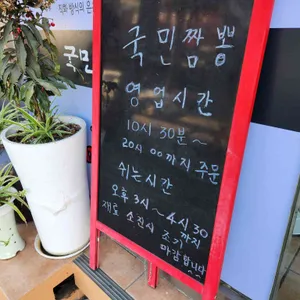 국민짬뽕
영업시간
10시 30분~
20시 00까지 주문
쉬는시간
오후 3시~4시30
까지
재료 소진시 조기
마감합니다
국민